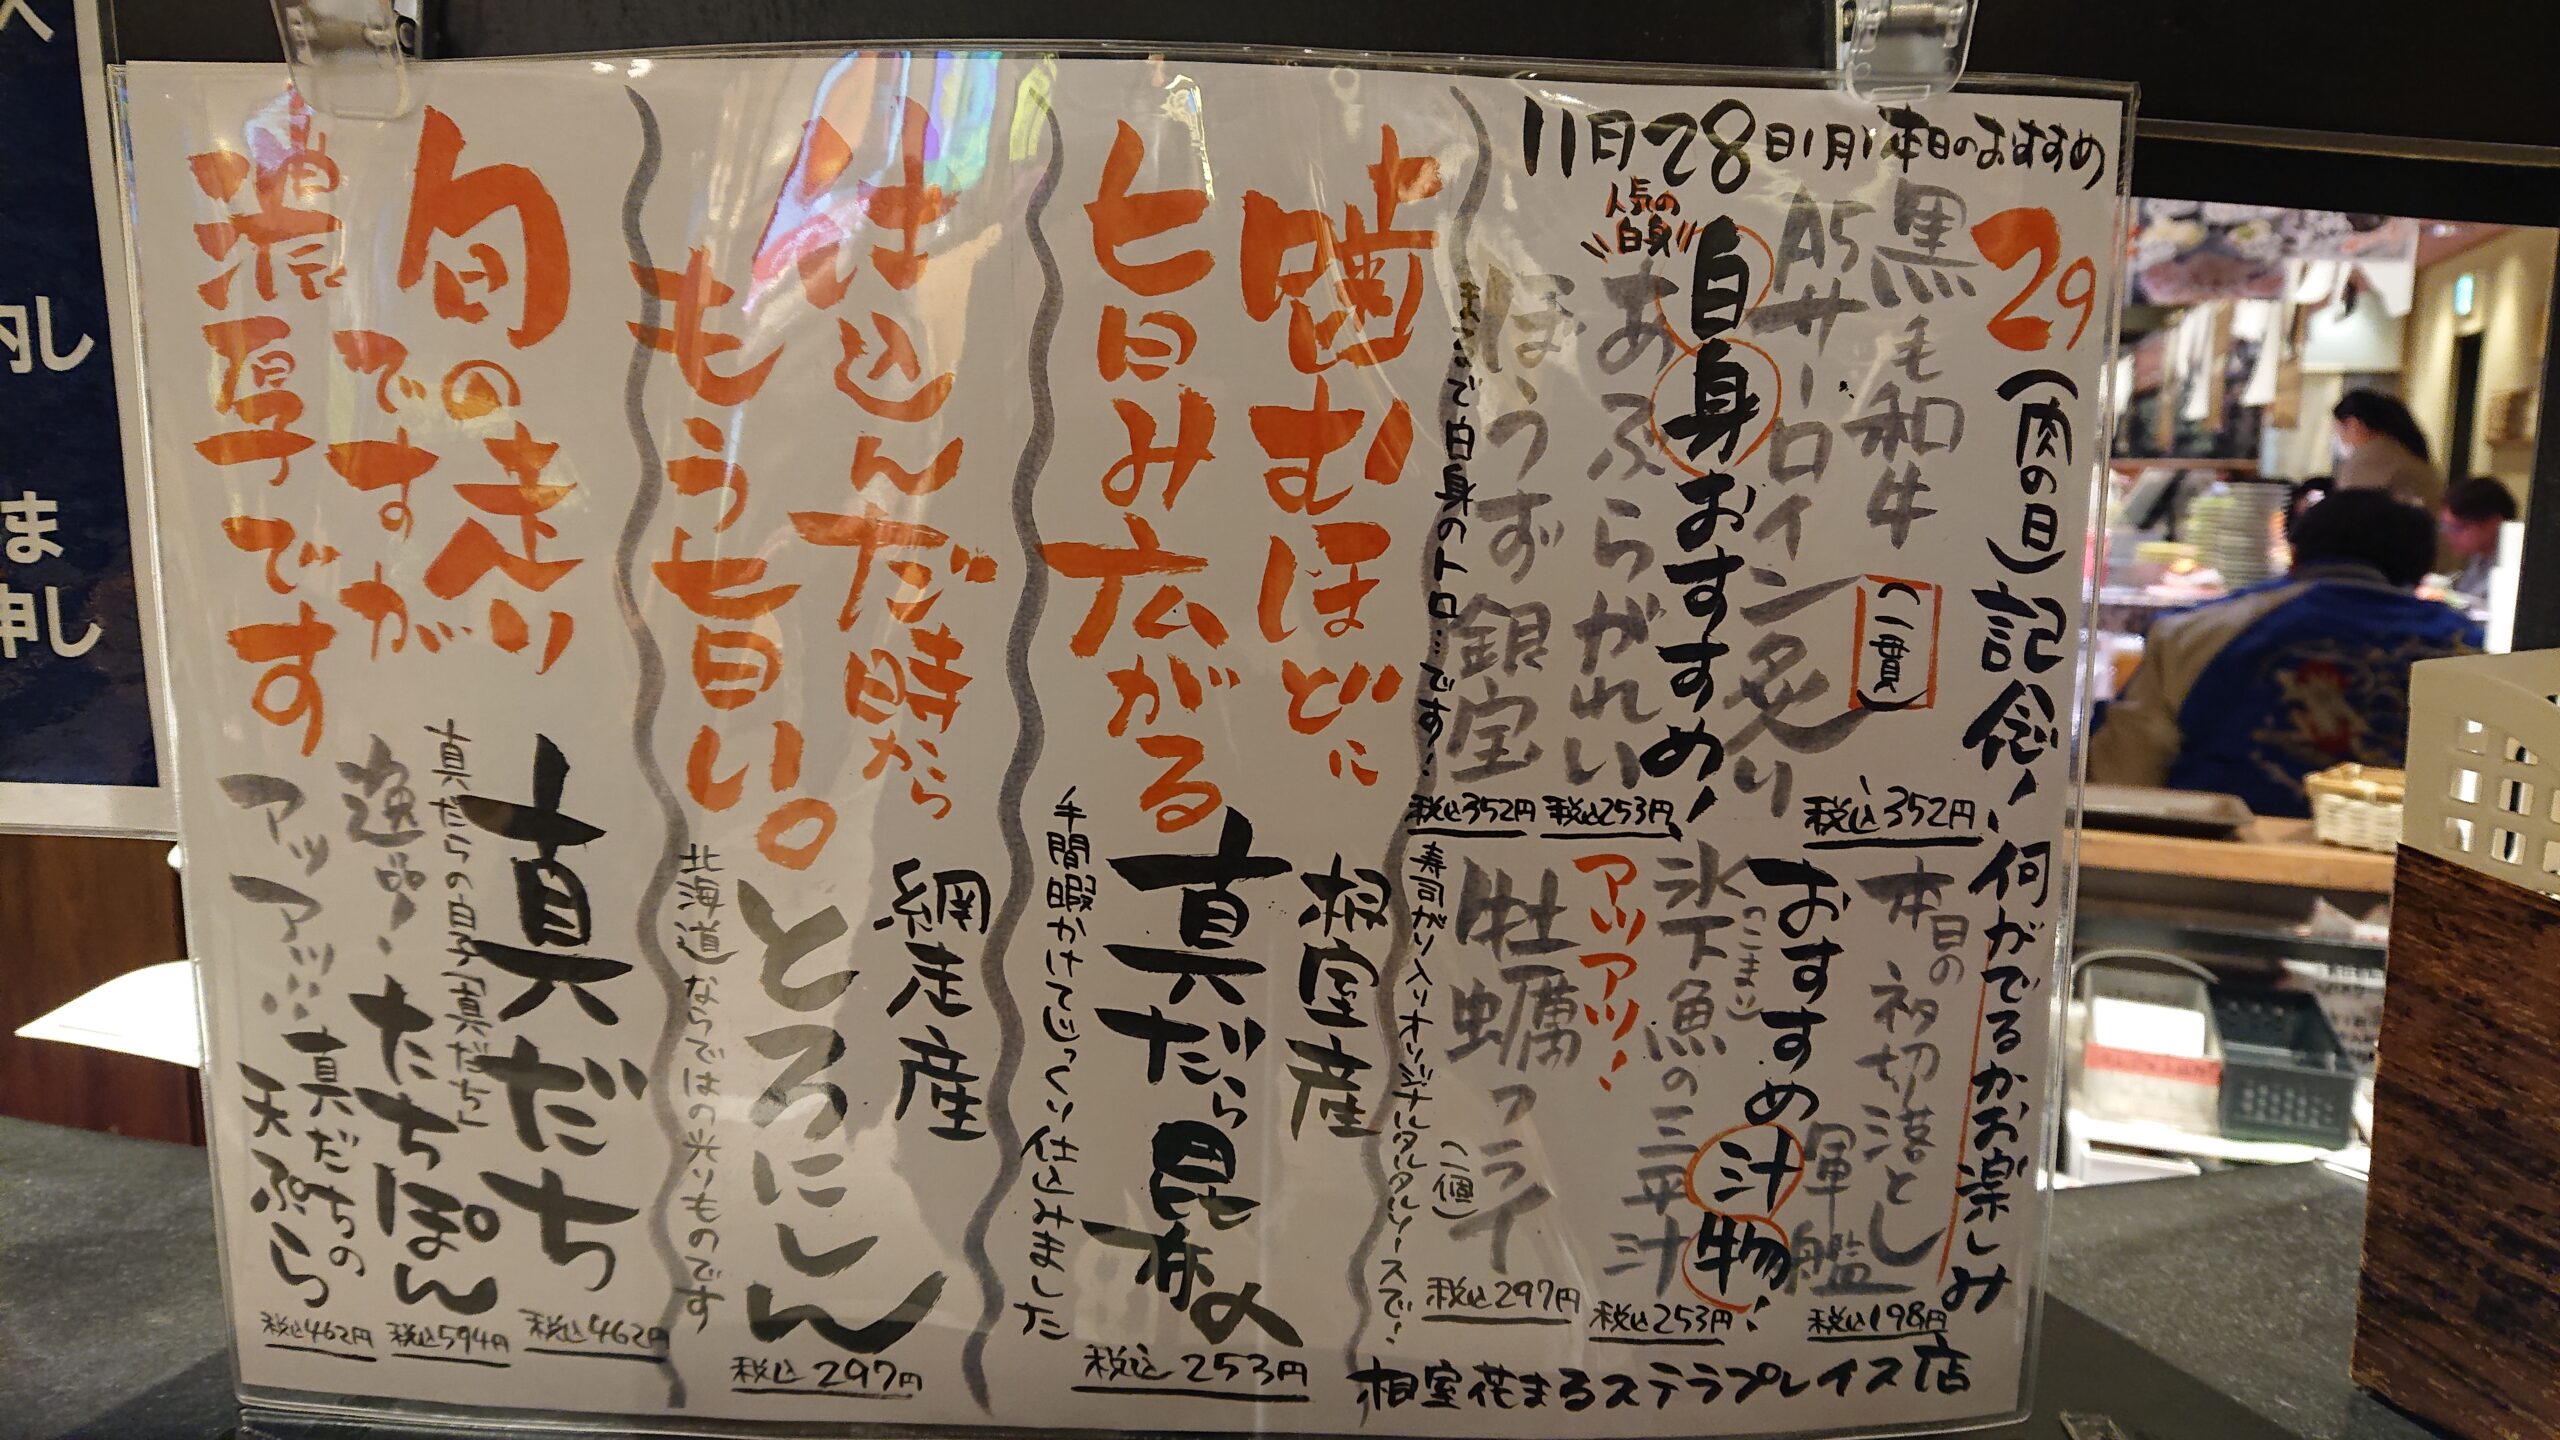 11月28日(月)本日のおすすめ
29(肉の日)記念!何がでるかお楽しみ
黒毛和牛
A5サーロイン炙り
(一貫)
税込352円
本日の初切落とし
軍艦
税込198円
白身おすすめ!
人気の
白身
あぶらがれい
税込253円
ほうず銀宝
税込352円
まるで白身のトロ…です!
おすすめ汁物!
氷下魚の三平汁
(こまい)
アツアツ!
税込253円
牡蠣フライ
(二個)
寿司がり入りオリジナルタルタルソースで!
税込297円
噛むほどに
旨み広がる
根室産
真だら昆布〆
手間暇かけてじっくり仕込みました
税込253円
ほ込んだ時から
もう旨い。
網走産
とろにしん
北海道ならではの光りものです
税込297円
旬の走り
ですが
濃厚です
真だち
真だらの白子「真だち」
税込462円
逸品!たちぽん
税込594円
アッツアツ…真だちの
天ぷら
税込462円
根室花まるステラプレイス店
内し
ま
申し